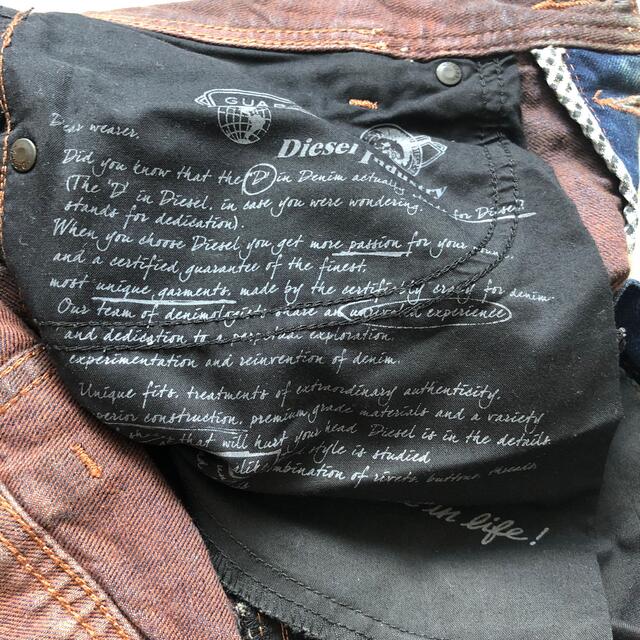 GUAR
Diesel Industry
Dear wearer.
Did you know that the 'D' in Denim actually for Diesel?
(The 'D' in Diesel, in case you were wondering,
stands for dedication).
When you choose Diesel you get more passion for your
and a certified guarantee of the finest,
most unique garments, made by the certifiably crazy for denim.
Our team of denimologists share an unrivaled experience
and dedication to perpetual exploration,
experimentation and reinvention of denim.
Unique fits, treatments of extraordinary authenticity.
superior construction, premium grade materials and a variety
that will hurt your head Diesel is in the details
style is studied
combination of rivets, buttons, threads
in life!